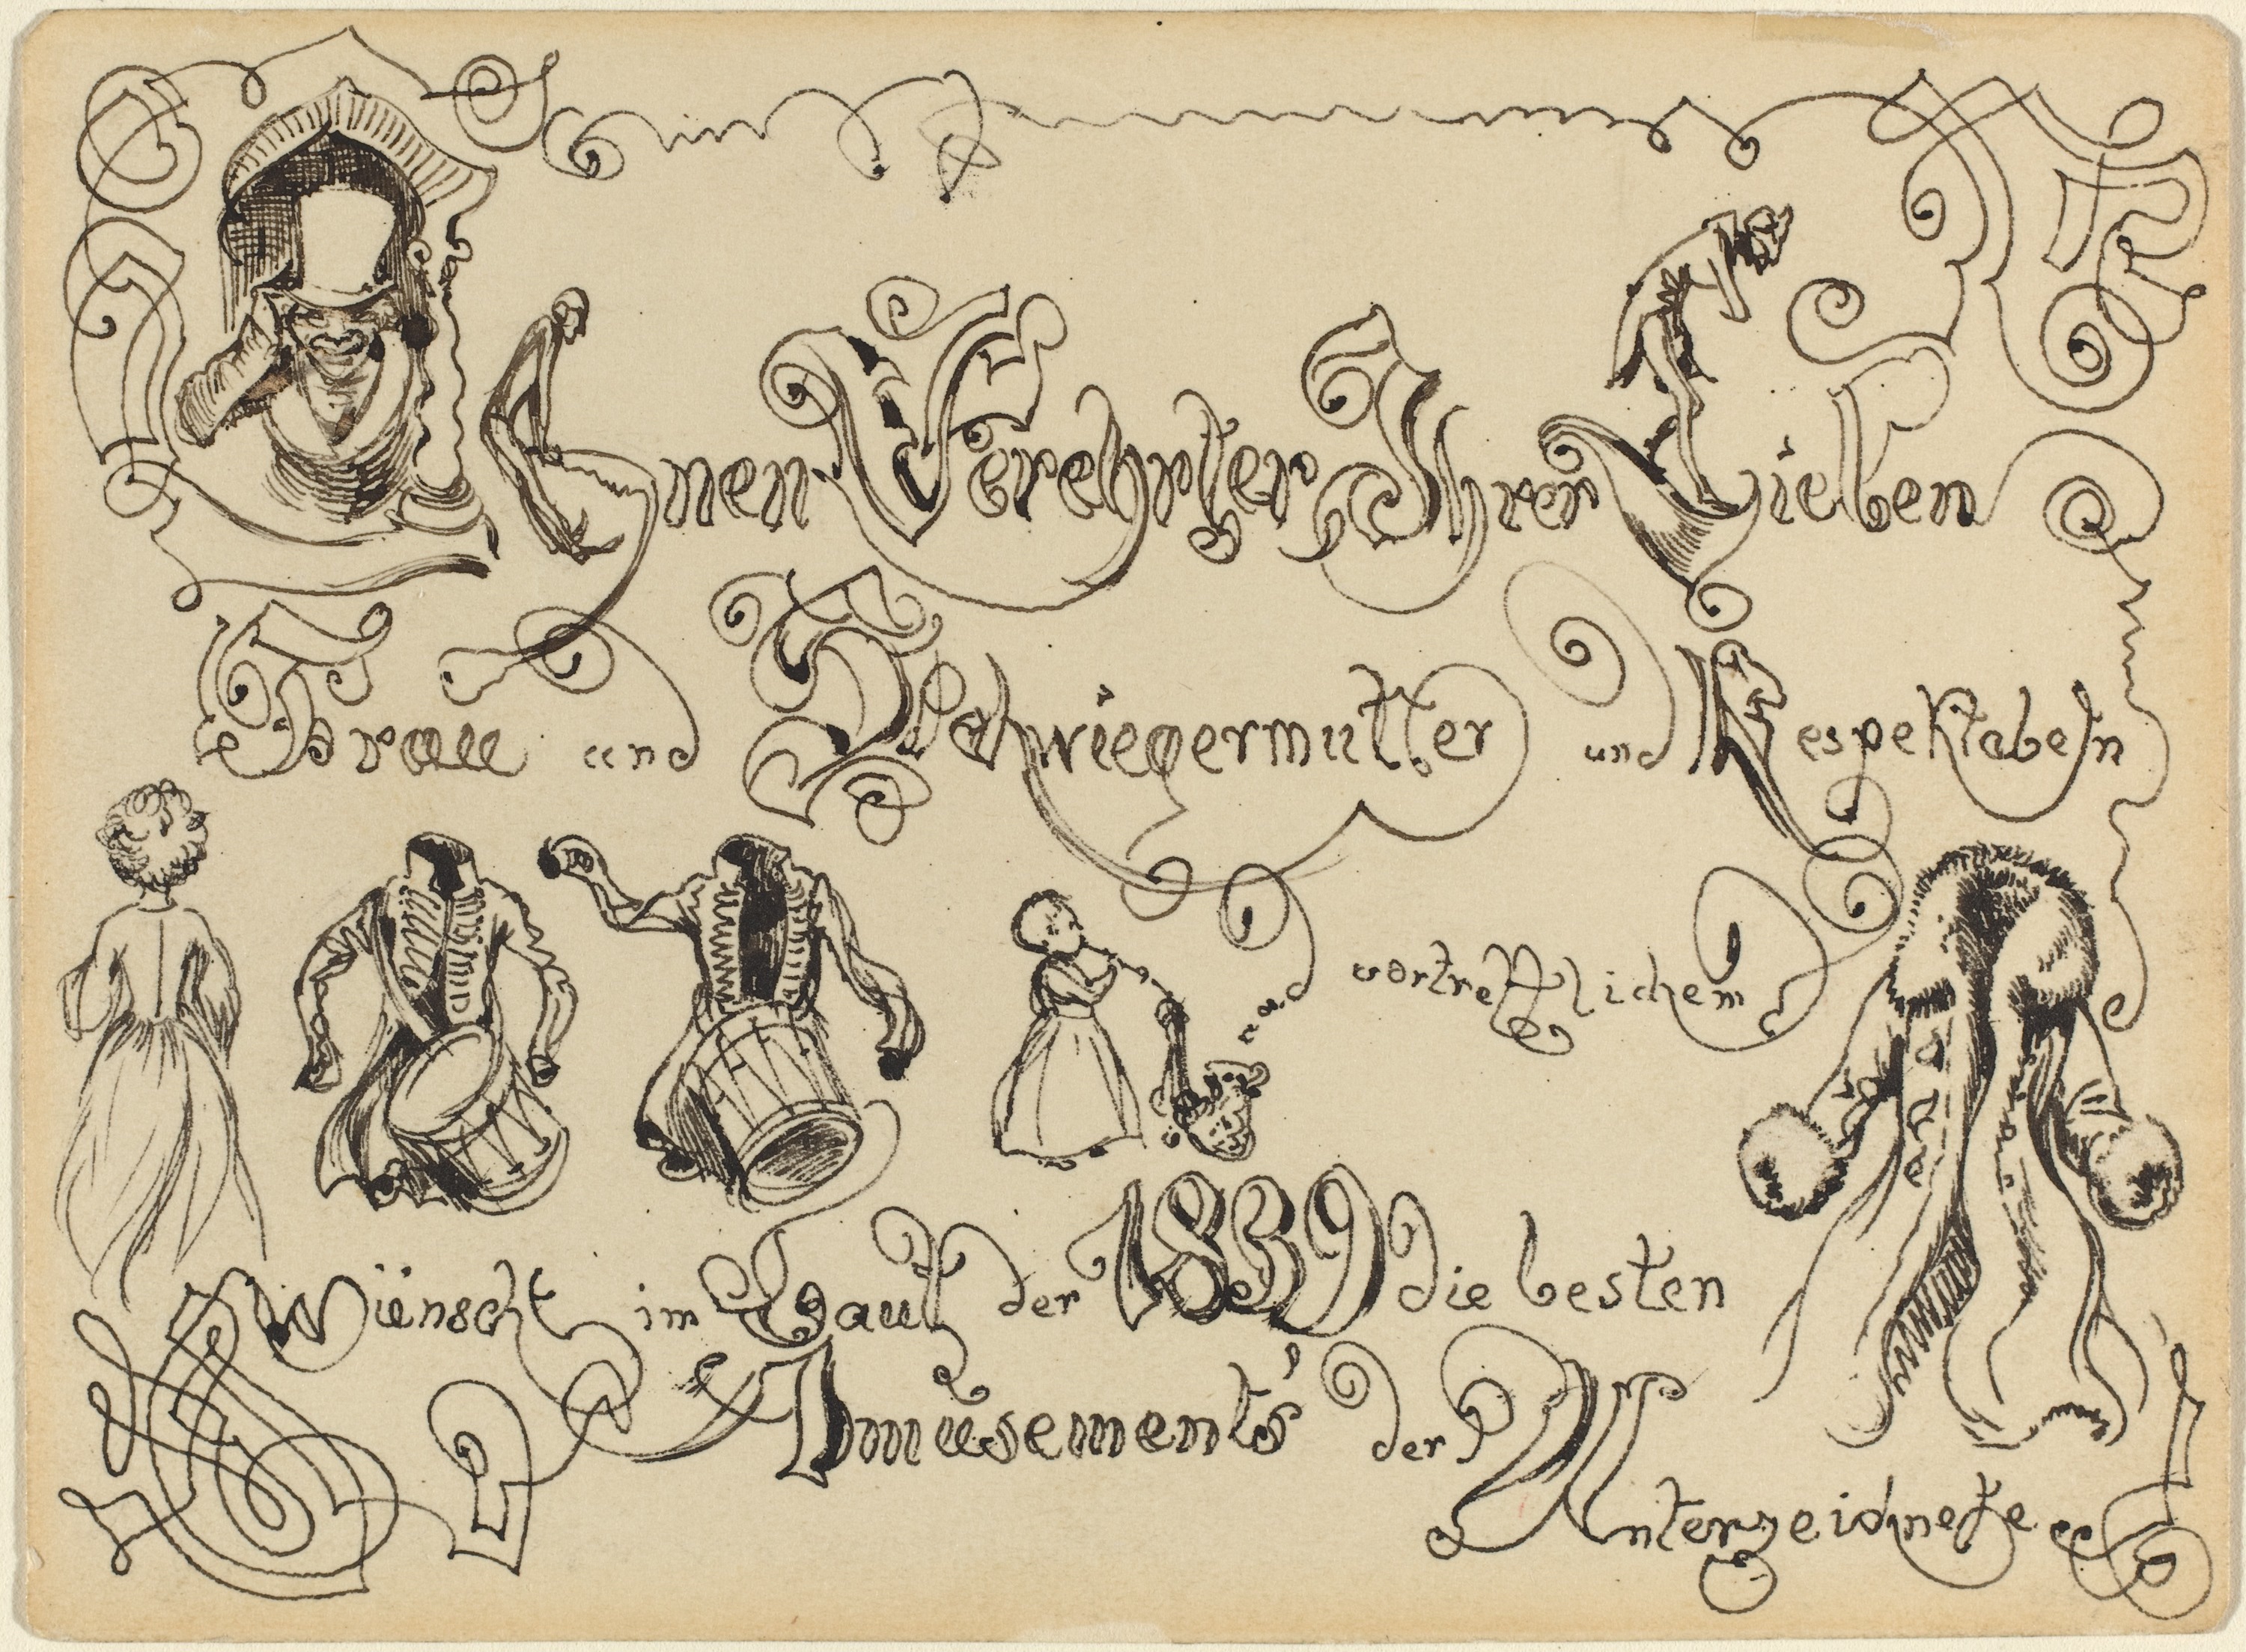 Ihnen Verehrter Ihrer Lieben
Frau und Schwiegermutter und Respektabeln
und vortrefflichem
wünscht im Lauf der 1839 die besten
Amusements' der
Unterzeichnete